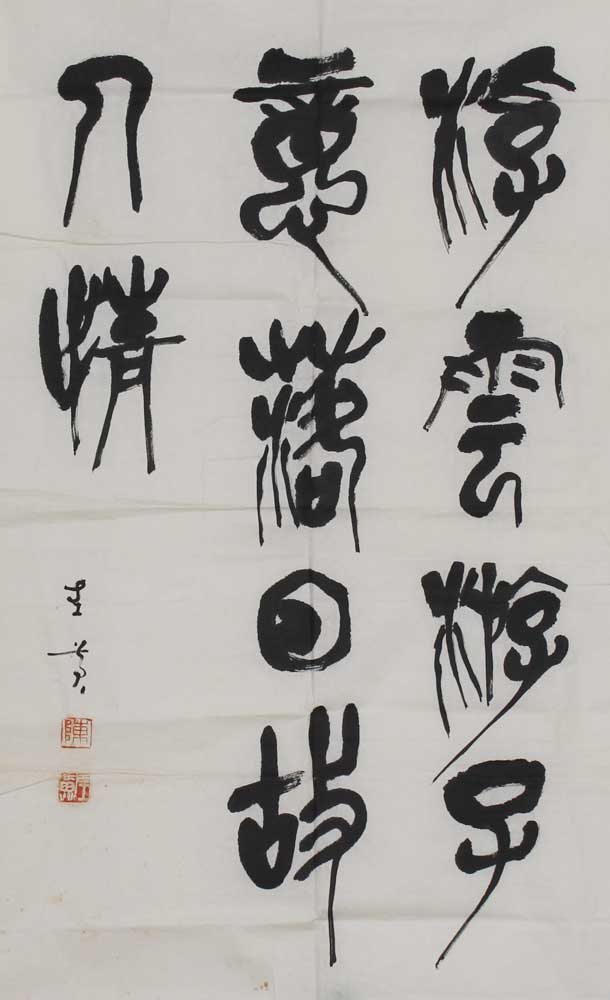 浮雲游子
意落日故
人情
陳